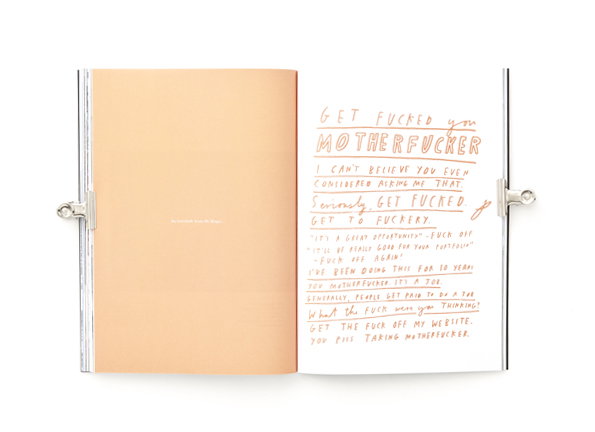 GET FUCKED you
MOTHERFUCKER
I CAN'T BELIEVE YOU EVEN
CONSIDERED ASKING ME THAT.
Seriously, GET FUCKED.
GET TO FUCKERY.
"IT'S A GREAT OPPORTUNITY" - FUCK OFF
"IT'LL BE REALLY GOOD FOR YOUR PORTFOLIO"
- FUCK OFF AGAIN!
I'VE BEEN DOING THIS FOR 10 YEARS
YOU MOTHERFUCKER IT'S A JOB
GENERALLY, PEOPLE GET PAID TO DO A JOB
What the FUCK were you THINKING?
GET THE FUCK OFF MY WEBSITE.
YOU PISS TAKING MOTHERFUCKER.